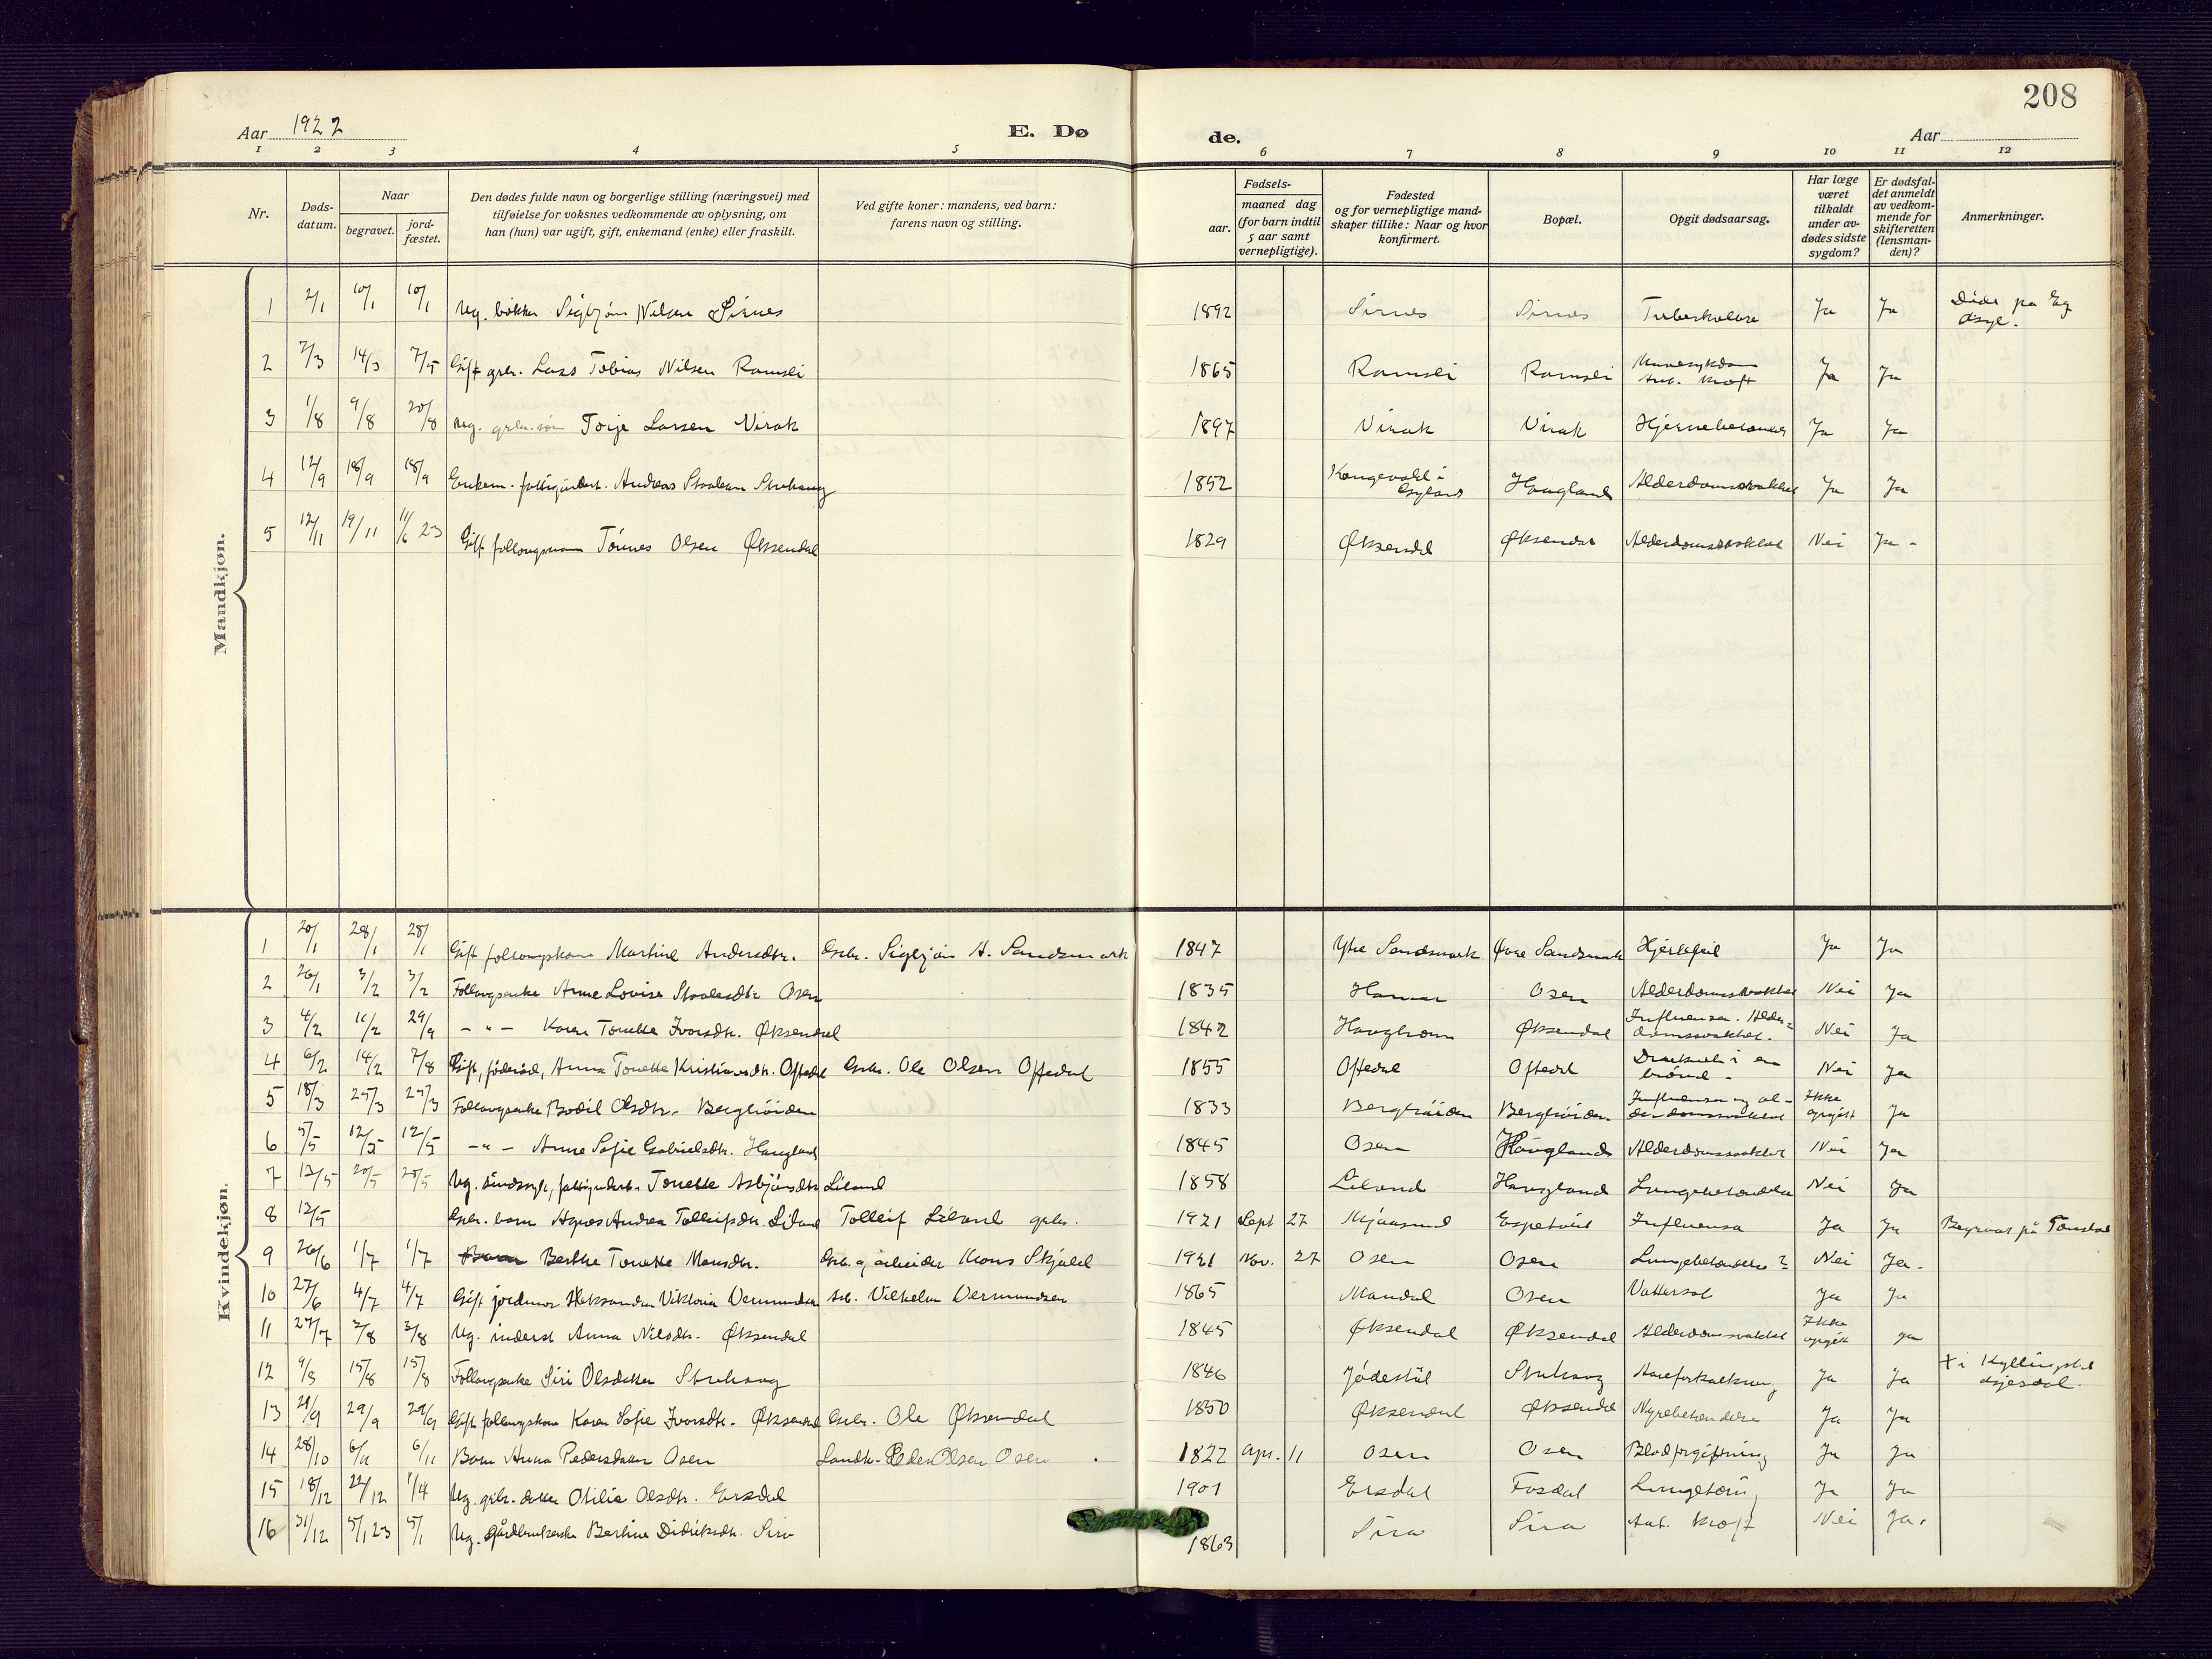 208
Aar 1922
E. Dø
de.
Aar
1 2 3 4 5 6 7 8 9 10 11 12
Nr.
Døds-
datum.
Naar
begravet.
jord-
fæstet.
Den dødes fulde navn og borgerlige stilling (næringsvei) med
tilføielse for voksnes vedkommende av oplysning, om
han (hun) var ugift, gift, enkemand (enke) eller fraskilt.
Ved gifte koner: mandens, ved barn:
farens navn og stilling.
Fødsels-
aar.
maaned dag
(for barn indtil
5 aar samt
vernepligtige).
Fødested
og for vernepligtige mand-
skaper tillike: Naar og hvor
konfirmert.
Bopæl.
Opgit dødsaarsag.
Har læge
været
tilkaldt
under av-
dødes sidste
sygdom?
Er dødsfal-
det anmeldt
av vedkom-
mende for
skifteretten
(lensman-
den)?
Anmerkninger.
Mandkjøn.
1 2/1 10/1 10/1 Ug. Sigbjørn Nilsen Sirnes 1892 Sirnes Sirnes Tuberkulose Ja Ja Døde på Eg
asyl.
2 7/3 14/3 7/5 Gift grbr. Lars Tobias Nilsen Ramsli 1865 Ramsli Ramsli Mavesykdom
Ant. kræft Ja Ja
3 1/8 9/8 20/8 Ug. grbr. søn Torje Larsen Virak 1897 Virak Virak Ja Ja
4 12/9 18/9 18/9 Enkem. Andreas Staalesen Stuhaug 1852 Kongevold i
Haugland Alderdomssvakhet Ja Ja
5 12/11 19/11 11/6 23 Gift follougsmann Tønnes Olsen Øksendal 1829 Øksendal Øksendal Alderdomssvakhet Nei Ja -
Kvindekjøn.
1 20/1 28/1 28/1 Gift follougskone Martine Andersdtr. Grbr. Sigbjørn A. Sandsmark 1847 Ytre Sandsmark Øvre Sandsmark Hjertefeil Ja Ja
2 26/1 3/2 3/2 Follougsenke Anne Lovise Staalesdtr Osen 1835 Hamar Osen Alderdomssvakhet Nei Ja
3 4/2 11/2 29/9 - " - Karen Tonette Ivarsdtr. Øksendal 1842 Haughom Øksendal Influensa. Alder-
domssvakhet. Nei Ja
4 6/2 14/2 7/8 Gift, føderåd, Anna Tonette Kristiansdtr. Oftedal Grbr. Ole Olsen Oftedal 1855 Oftedal Oftedal Druknet i en
brønd - Nei Ja
5 18/3 25/3 25/3 Follougsenke Bodil Olsdtr. Berghøiden 1833 Berghøiden Berghøiden Influensa og al-
derdomssvakhet Ikke
opgit Ja
6 5/5 12/5 12/5 - " - Anne Sofie Gabrielsdtr. Haugland 1845 Osen Haugland Alderdomssvakhet Nei Ja
7 12/5 20/5 20/5 Ug. sindssyk, Tonette Asbjørnsdtr Liland 1858 Liland Haugland Lungebetændelse Nei Ja
8 12/5 Grbr. barn Agnes Andrea Tolleifsdtr. Liland Tolleif Liland grbr. 1921 Sept 27 Mjaasund Espetveit Influensa Ja Ja Begravet på Tonstad
9 26/6 1/7 1/7 Berthe Tonette Monsdtr. Grbr. og arbeider Mons Skjold 1921 Nov. 27 Osen Osen Lungebetændelse? Nei Ja.
10 27/6 4/7 4/7 Gift jordmor Aleksandra Viktoria Vermundsen Arb. Vilhelm Vermundsen 1865 Mandal Osen Vattersot Ja Ja
11 27/7 2/8 2/8 Ug. inderst Anna Nilsdtr. Øksendal 1845 Øksendal Øksendal Alderdomssvakhet Ikke
opgit Ja
12 9/8 15/8 15/8 Follougsenke Siri Olsdatter Stuhaug 1846 Jødestøl Stuhaug Aareforkalkning Ja Ja
13 21/9 29/9 29/9 Gift follougskone Karen Sofie Ivarsdtr. Øksendal Grbr. Ole Øksendal 1850 Øksendal Øksendal Nyrebetændelse Ja Ja
14 28/10 6/11 6/11 Barn Anna Pedersdatter Osen Landh. Peder Olsen Osen 1822 Apr. 11 Osen Osen Blodforgiftning Ja Ja
15 18/12 22/12 1/4 Ug. grbr. datter Otilie Olsdtr. Ersdal 1901 Ersdal Fosdal Ja Ja
16 31/12 5/1 23 5/1 Ug. gårdbrukerske Bertine Didriksdtr. Sira 1863 Sira Sira Ant. kræft Nei Ja.